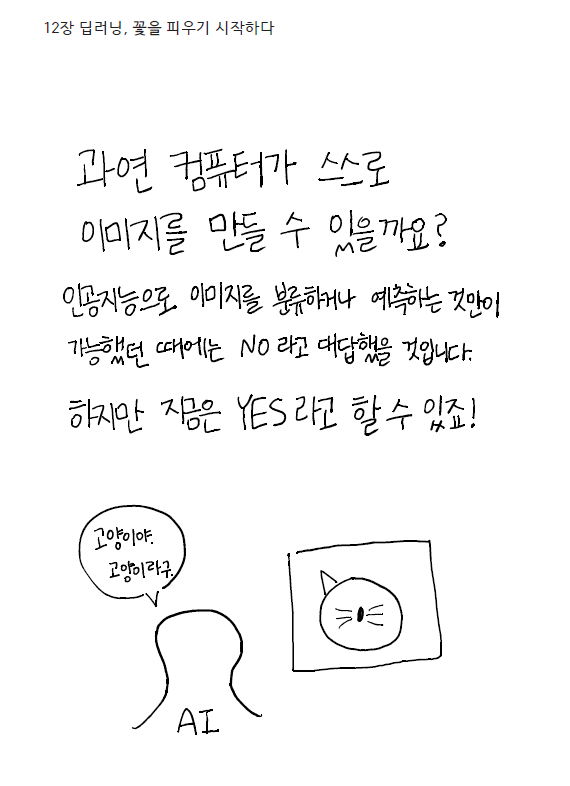 12장 딥러닝, 꽃을 피우기 시작하다
과연 컴퓨터가 스스로
이미지를 만들 수 있을까요?
인공지능으로 이미지를 분류하거나 예측하는 것만이
가능했던 때에는 NO 라고 대답했을 것입니다.
하지만 지금은 YES 라고 할 수 있죠!
고양이야.
고양이라구.
AI